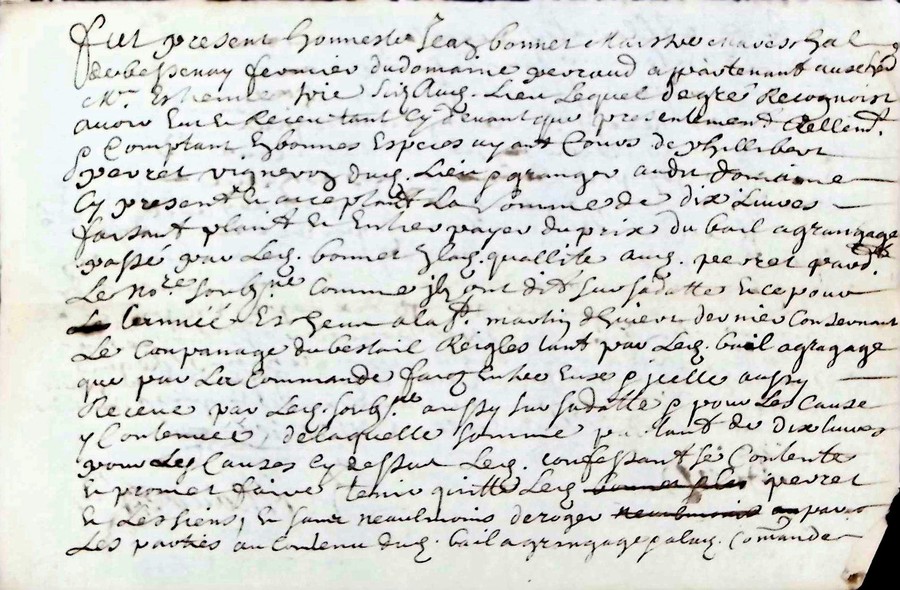 fut present honneste Jean bonnet Maistre mareschal
de bessenay fermier du domaine perraud appartenant au seigr
Mre Estienne lieu Lequel de gré Recognoist
avoir Eu et Receu tant cy devant que presentement Rellemt
Comptant En bonnes Especes ayant Cours de phillibert
perret vigneron dud. Lieu granger audit domaine
Cy present et acceptant La somme de dix Livres
faisant plaint et Entier payer du prix du bail a grangage
passé par Led. bonnet En lad. quallité aud. perret pardt
Le nore soubzne comme ilz ont dit sur sa datte Et ce pour
lannée Escheue a la st. martin dhivert dernier Consernant
Le Coupanage du bestail Reigles tant par Led. bail a gragage
que par La Commande faicte Entre Eux p icelle aussy
Receue par Led. soubzne aussy sur sa datte p pour Les Cause
y Contenues, de laquelle somme de dix livres
pour Les Causes Cy dessus Led. confessant se Contente
Et promet faire tenir quitte Led. perret
Et Les siens, Et sans neaulmoins deroger par
Les parties au Contenu dud. bail a grangage lad. Commande